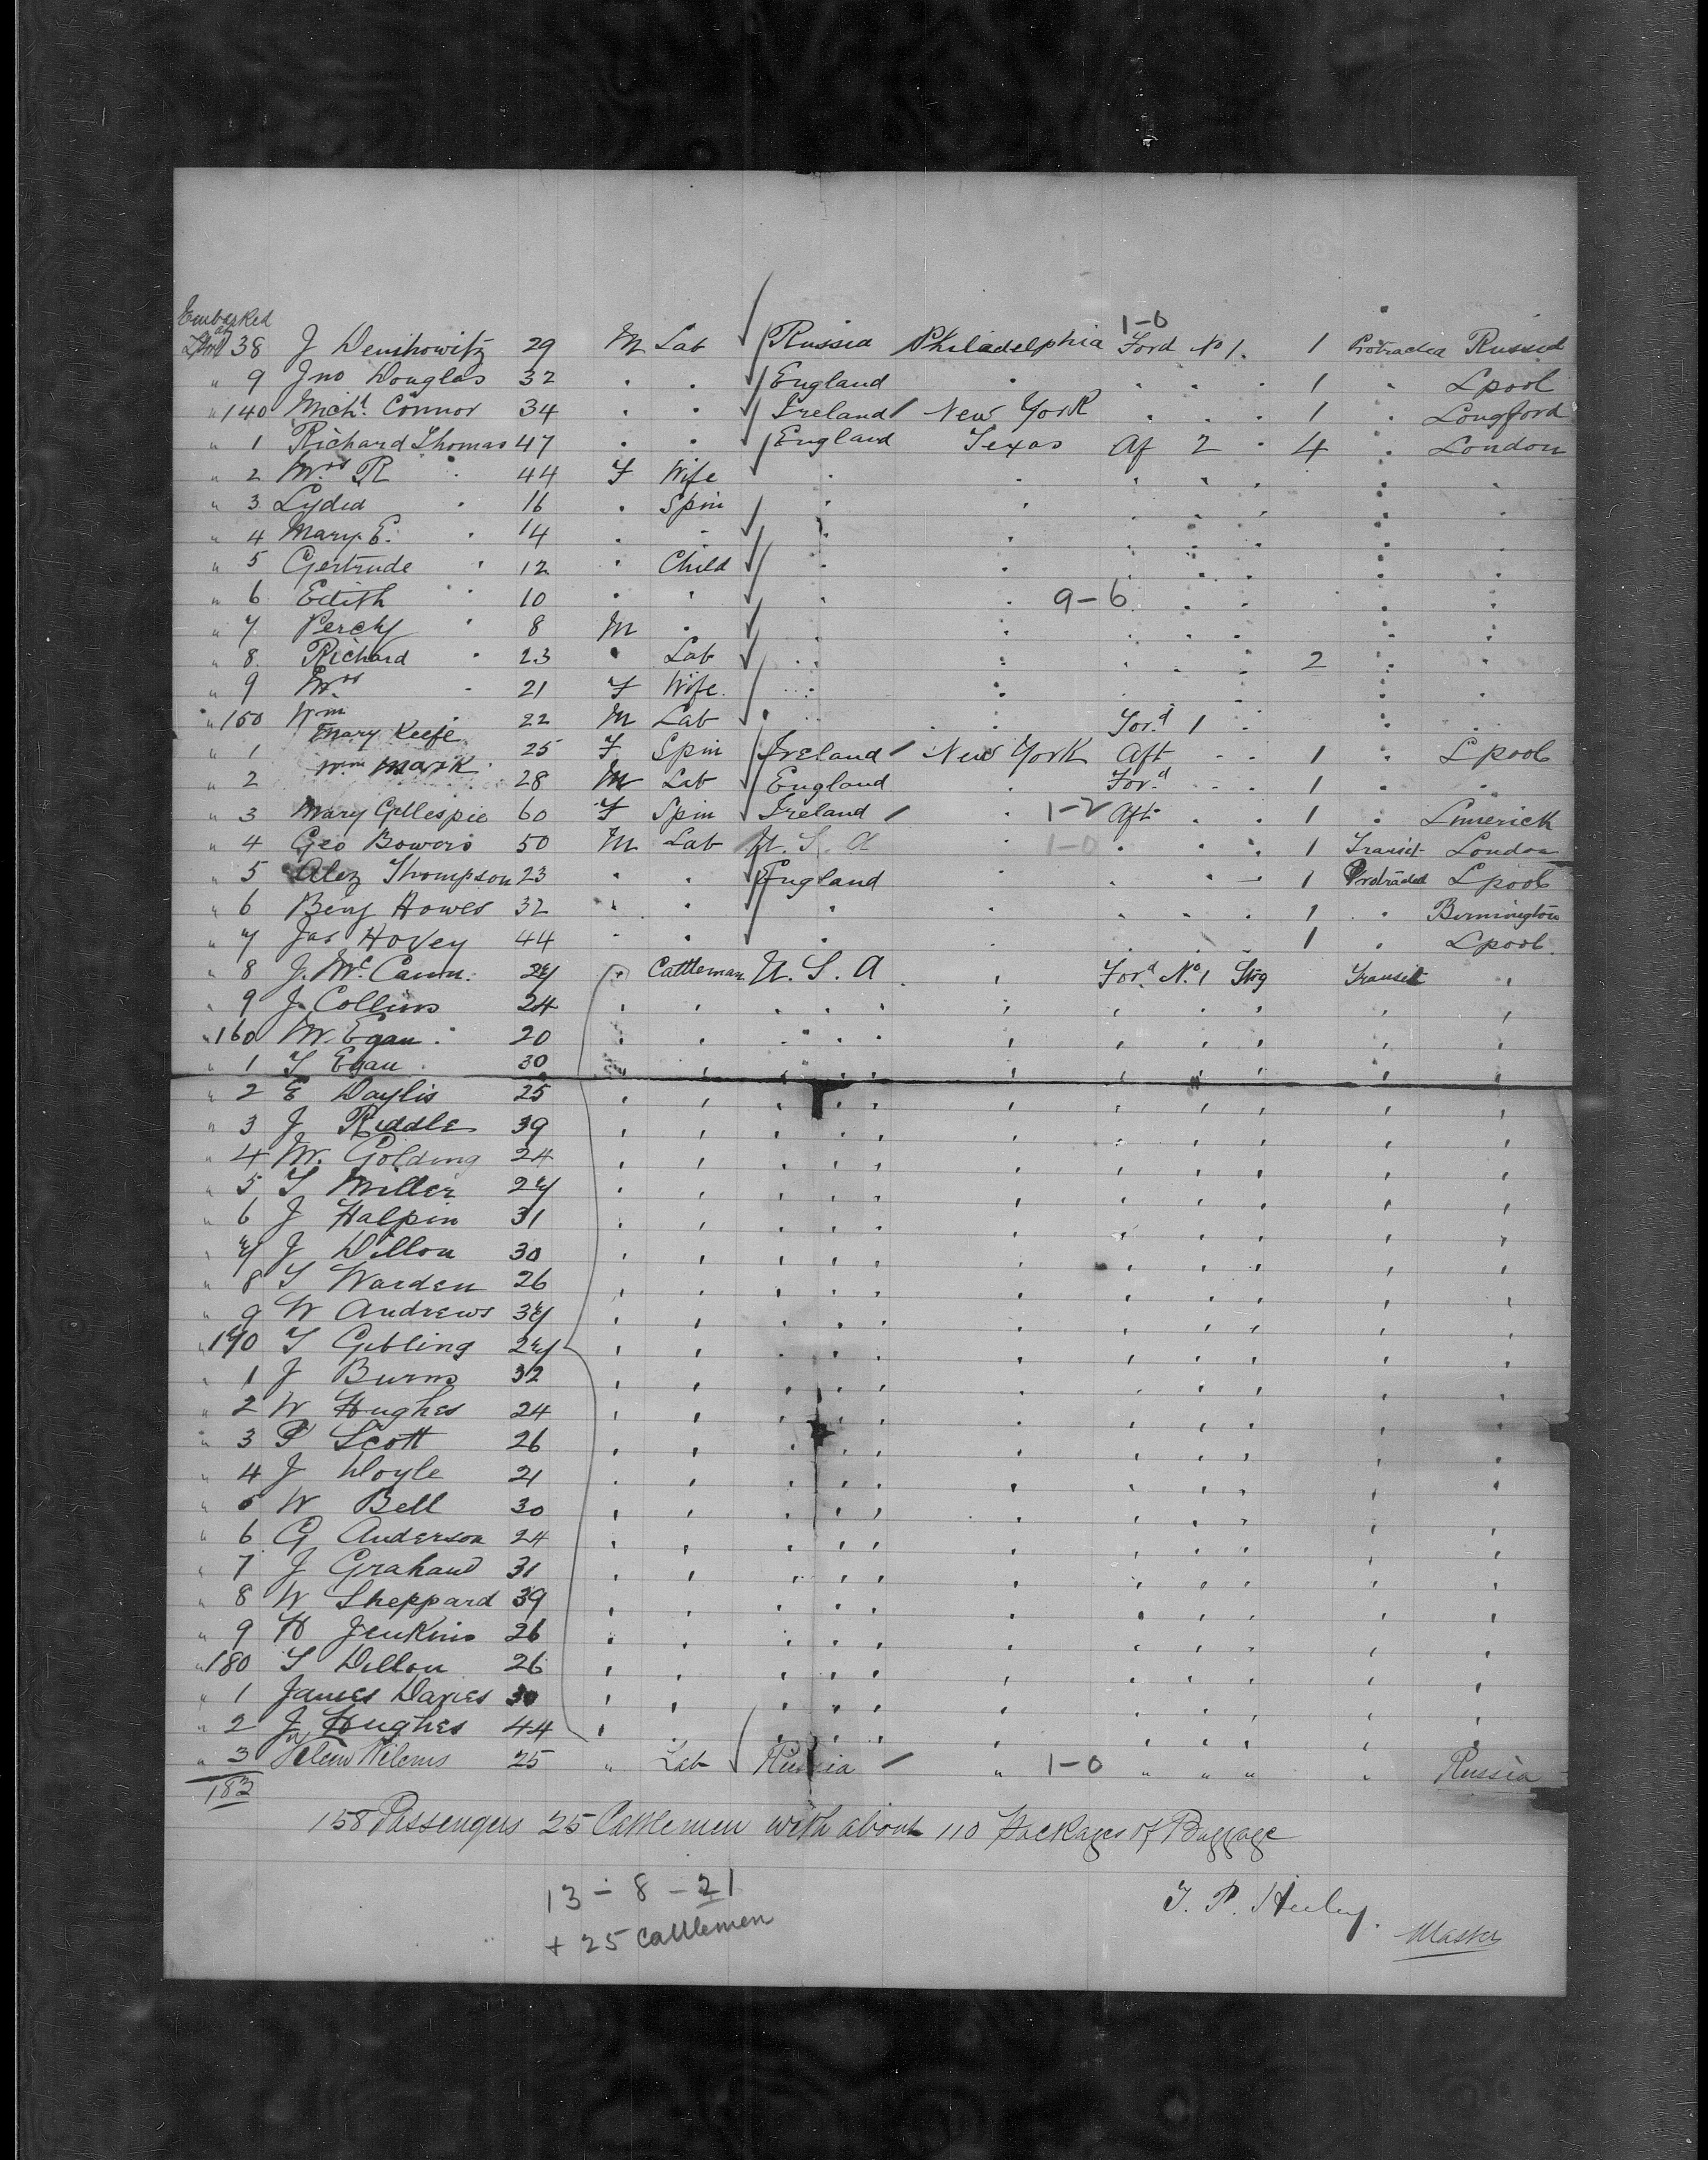 Embarked
at
Lpool 38 J Denihowitz 29 M Lab Russia Philadelphia Ford No 1. 1-0 1 Protracted Russia
" 9 Jno Douglas 32 " " England " " " " 1 " Lpool
" 140 Michl Connor 34 " " Ireland New York " " " 1 " Longford
" 1 Richard Thomas 47 " " England Texas Af 2 " 4 " London
" 2 Mrs R " 44 F Wife " " " " " " "
" 3 Lydia " 16 " Spin " " " " " " "
" 4 Mary E. " 14 " " " " " " " " "
" 5 Gertrude " 12 " Child " " " " " " "
" 6 Edith " 10 " " " " 9-6 " " " "
" 7 Percy " 8 M " " " " " " " "
" 8 Richard " 23 " Lab " " " " " 2 " "
" 9 Mrs " 21 F Wife " " " " " " "
" 150 Wm " 22 M Lab " " Ford 1 " " "
" 1 Mary Keefe 25 F Spin Ireland New York Aft " " 1 " Lpool
" 2 Wm Mark 28 M Lab England " Ford " " 1 " "
" 3 Mary Gillespie 60 F Spin Ireland " 1-2 Aft " " 1 " Limerick
" 4 Geo Bowers 50 M Lab U. S. A " 1-0 " " " 1 Transit London
" 5 Alex Thompson 23 " " England " " " " 1 Protracted Lpool
" 6 Benj Howes 32 " " " " " " " 1 " Birmington
" 7 Jas Hovey 44 " " " " 1 " Lpool
" 8 J. Mc Cann 27 " Cattleman U. S. A " Ford No 1 Stg Transit "
" 9 J. Collins 24 " " " " " " " " " " "
" 160 M. Egan 20 " " " " " " " " " " "
" 1 T Egan 30 " " " " " " " " " " "
" 2 E Daylis 25 " " " " " " " " " " "
" 3 J Riddle 39 " " " " " " " " " " "
" 4 M. Golding 24 " " " " " " " " " " "
" 5 T Miller 27 " " " " " " " " " " "
" 6 J Halpin 31 " " " " " " " " " " "
" 7 J Dillon 30 " " " " " " " " " " "
" 8 T Warden 26 " " " " " " " " " " "
" 9 W Andrews 37 " " " " " " " " " " "
" 170 T Gibling 27 " " " " " " " " " " "
" 1 J Burns 32 " " " " " " " " " " "
" 2 W Hughes 24 " " " " " " " " " " "
" 3 P Scott 26 " " " " " " " " " " "
" 4 J Doyle 21 " " " " " " " " " " "
" 5 W Bell 30 " " " " " " " " " " "
" 6 G Anderson 24 " " " " " " " " " " "
" 7 J Graham 31 " " " " " " " " " " "
" 8 W Sheppard 39 " " " " " " " " " " "
" 9 H Jenkins 26 " " " " " " " " " " "
" 180 T Dillon 26 " " " " " " " " " " "
" 1 James Davies 30 " " " " " " " " " " "
" 2 J Hughes 44 " " " " " " " " " " "
" 3 25 " Lab Russia " 1-0 " " " " Russia
183
158 Passengers 25 Cattlemen with about 110 Packages of Baggage
13 - 8 - 21
+ 25 Cattlemen
Master